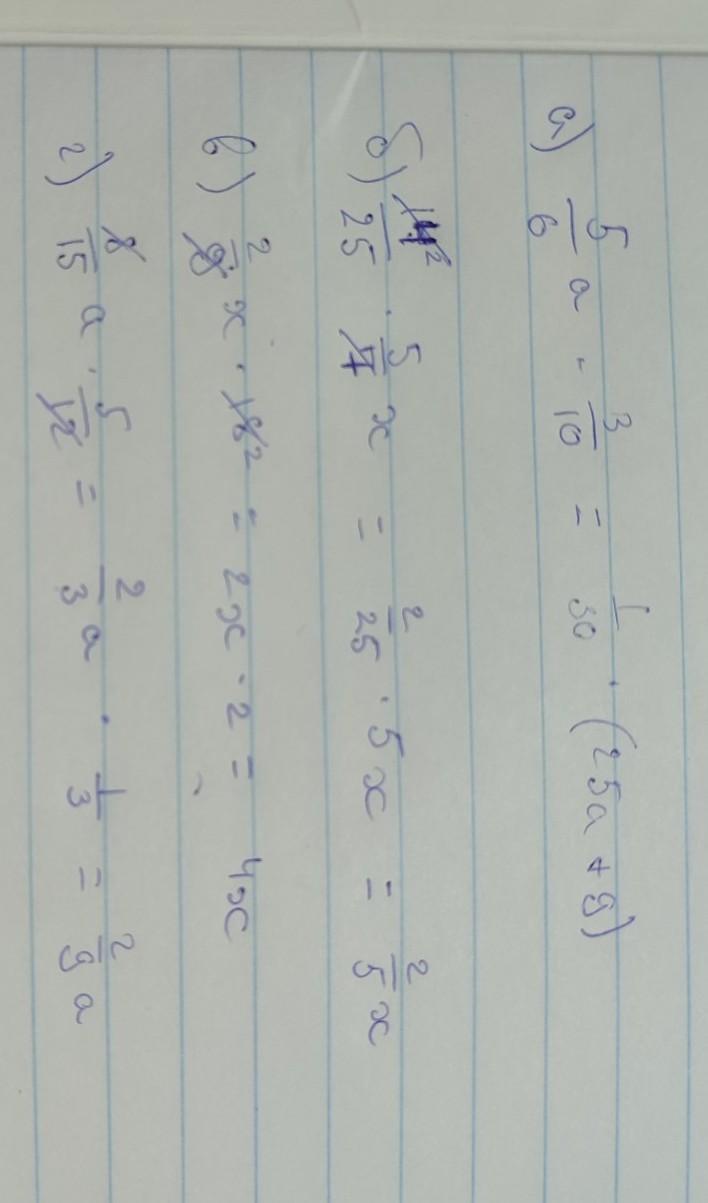 а) 5/6 a · 3/10 = 1/30 · (25a + 9)
б) 14²/25 · 5/7 x = 2/25 · 5x = 2/5 x
в) 2/9 x · 18 2 = 2x · 2 = 4x
г) 8/15 a · 5/12 = 2/3 a · 1/3 = 2/9 a